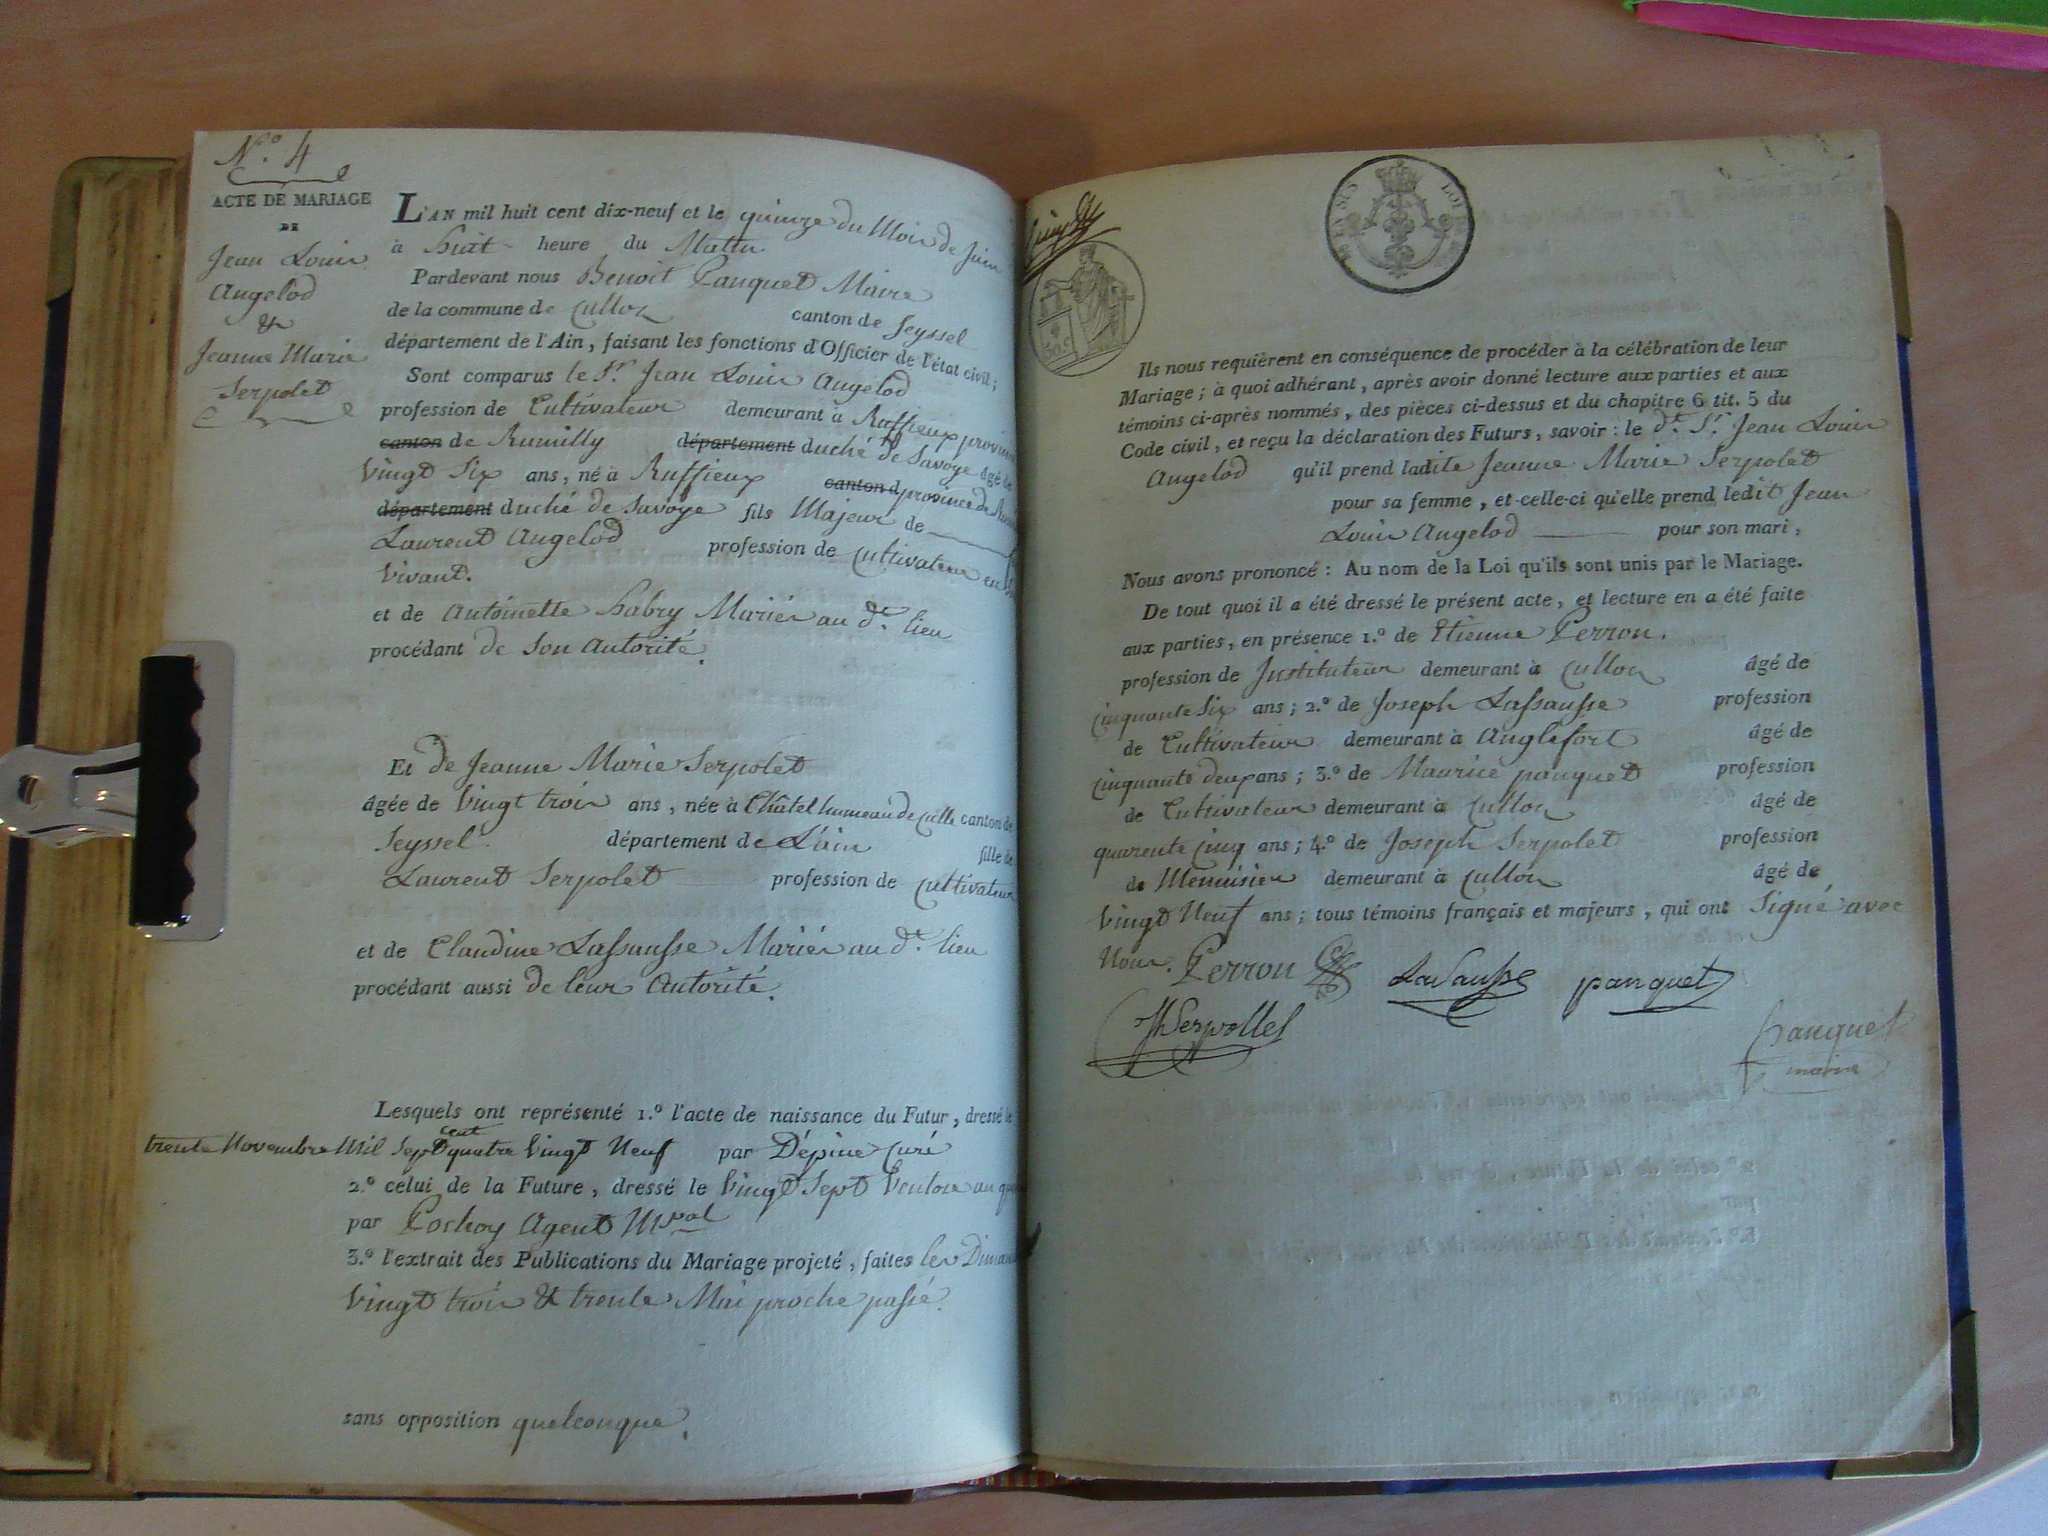 N.º 4
ACTE DE MARIAGE
DE
Jean Louis
Angelod
&
Jeanne Marie
Serpolet
L'AN mil huit cent dix-neuf et le quinze du Mois de Juin
à huit heure du Matin
Pardevant nous Benoit Panquet Maire
de la commune de Culloz canton de Seyssel
département de l'Ain, faisant les fonctions d'Officier de l'état civil;
Sont comparus le Sr. Jean Louis Angelod
profession de Cultivateur demeurant à Ruffieux province
canton de Rumilly département duché de Savoye âgé de
Vingt Six ans, né à Ruffieux canton d province de
département duché de Savoye fils Majeur de
Laurent Angelod profession de Cultivateur
Vivant.
et de Antoinette habry Mariés au dt. lieu
procédant de Son Autorité.
Et de Jeanne Marie Serpolet
âgée de Vingt trois ans, née à Châtel humeau de Culle canton de
Seyssel département de L'ain fille de
Laurent Serpolet profession de Cultivateur
et de Claudine Lassausse Mariés au dt. lieu
procédant aussi de leur Autorité.
Lesquels ont représenté 1.º l'acte de naissance du Futur, dressé le
trente Novembre Mil Sept cent quatre Vingt Neuf par Dépine Curé
2.º celui de la Future, dressé le Vingt Sept Ventose an
par Agent Mpal
3.º l'extrait des Publications du Mariage projeté, faites les
Vingt trois & trente Mai proche passé.
sans opposition quelconque.
Ils nous requièrent en conséquence de procéder à la célébration de leur
Mariage; à quoi adhérant, après avoir donné lecture aux parties et aux
témoins ci-après nommés, des pièces ci-dessus et du chapitre 6 tit. 5 du
Code civil, et reçu la déclaration des Futurs, savoir: le dt. Sr. Jean Louis
Angelod qu'il prend ladite Jeanne Marie Serpolet
pour sa femme, et celle-ci qu'elle prend ledit Jean
Louis Angelod pour son mari,
Nous avons prononcé: Au nom de la Loi qu'ils sont unis par le Mariage.
De tout quoi il a été dressé le présent acte, et lecture en a été faite
aux parties, en présence 1.º de Etienne Perron.
profession de Instituteur demeurant à Culloz âgé de
Cinquante Six ans; 2.º de Joseph Lassausse profession
de Cultivateur demeurant à Anglefort âgé de
Cinquante deux ans; 3.º de Maurice panquet profession
de Cultivateur demeurant à Culloz âgé de
quarente Cinq ans; 4.º de Joseph Serpolet profession
de Menuisier demeurant à Culloz âgé de
Vingt Neuf ans; tous témoins français et majeurs, qui ont Signé avec
Nous. Perron Lassausse panquet
Jh Serpollet
panquet
maire